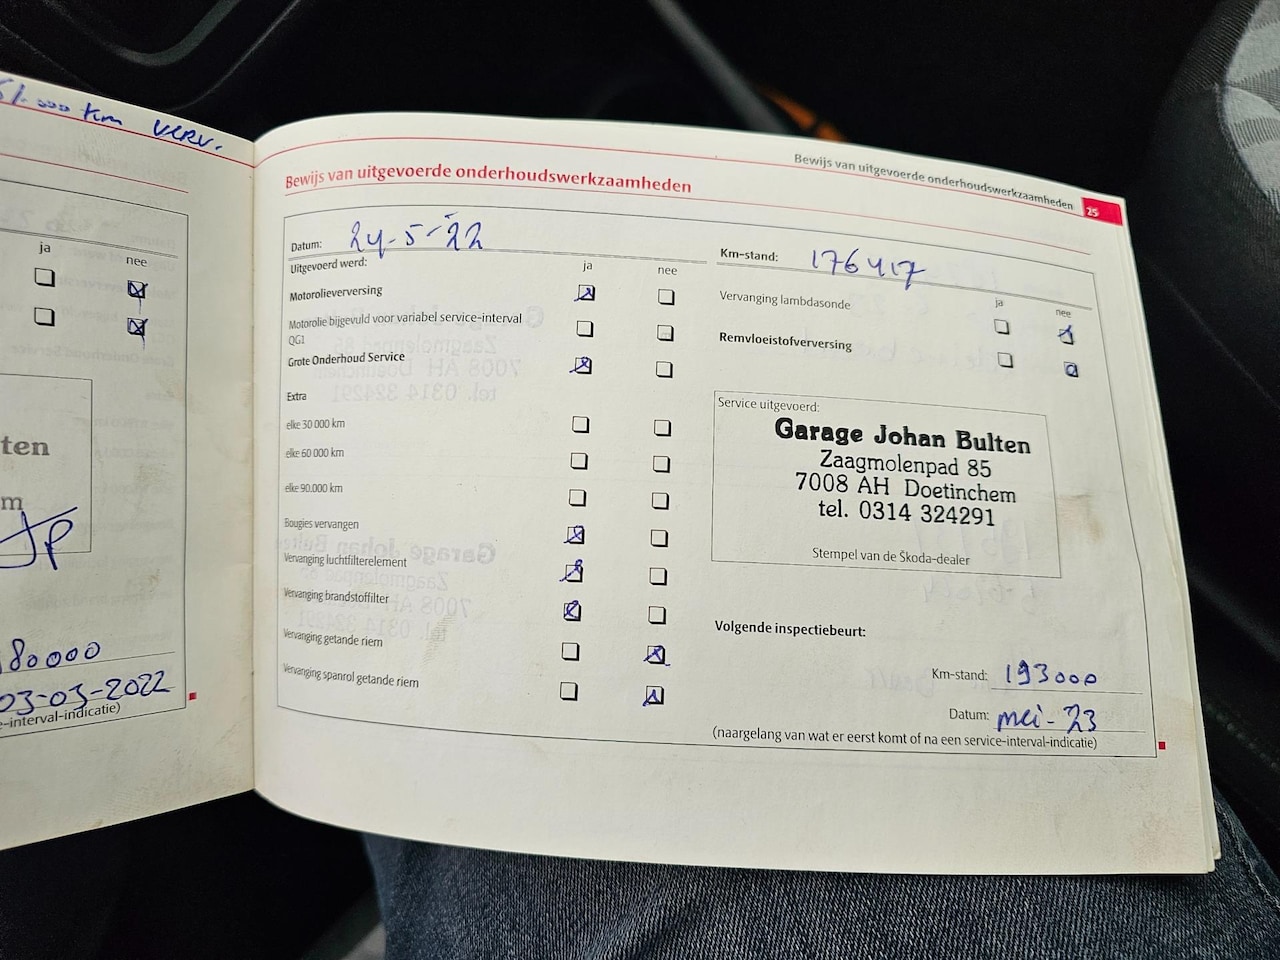 51.000 km verv.
ja nee
ten
m
JP
80000
03-03-2022
e-interval-indicatie)
Bewijs van uitgevoerde onderhoudswerkzaamheden 25
Bewijs van uitgevoerde onderhoudswerkzaamheden
Datum: 24-5-22
Uitgevoerd werd: ja nee
Motorolieverversing
Motorolie bijgevuld voor variabel service-interval
QG1
Grote Onderhoud Service
Extra
elke 30 000 km
elke 60 000 km
elke 90.000 km
Bougies vervangen
Vervanging luchtfilterelement
Vervanging brandstoffilter
Vervanging getande riem
Vervanging spanrol getande riem
Km-stand: 176417
ja nee
Vervanging lambdasonde
Remvloeistofverversing
Service uitgevoerd:
Garage Johan Bulten
Zaagmolenpad 85
7008 AH Doetinchem
tel. 0314 324291
Stempel van de Škoda-dealer
Volgende inspectiebeurt:
Km-stand: 193000
Datum: mei-23
(naargelang van wat er eerst komt of na een service-interval-indicatie)